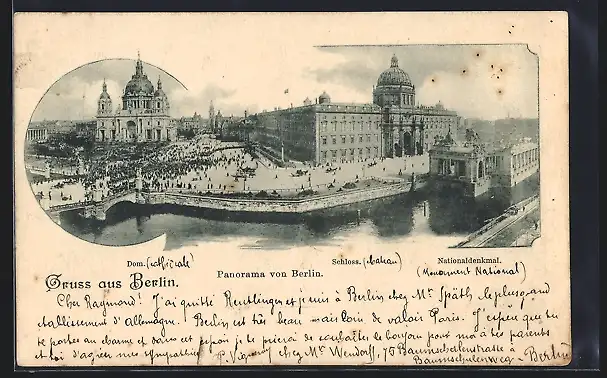 Dom. (cathédrale)
Schloss. (chateau)
Nationaldenkmal.
Panorama von Berlin.
(Monument National)
Gruss aus Berlin.
Cher Raymond! J'ai quitté Reutlingen et je suis à Berlin chez Mr Späth, le plus grand
établissement d'Allemagne. Berlin est très beau mais loin de valoir Paris. J'espère que tu
te portes au charme et dans cet espoir je te prierai de souhaiter le bonjour pour moi à tes parents
et toi d'agréer mes sympathies P. Vigneny chez Mr Wendorff, 75 Baumschulenstrasse à
Baumschulenweg - Berlin